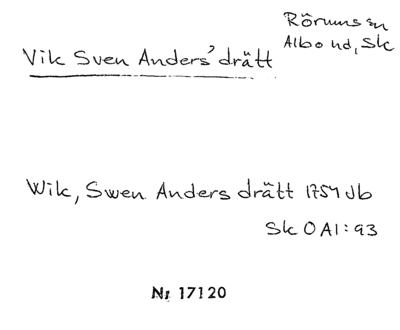 Rörums sn
Albo hd, Sk
Vik Sven Anders' drätt
Wik, Swen Anders drätt 1754 Jb
Sk O AI:93
Nr 17120